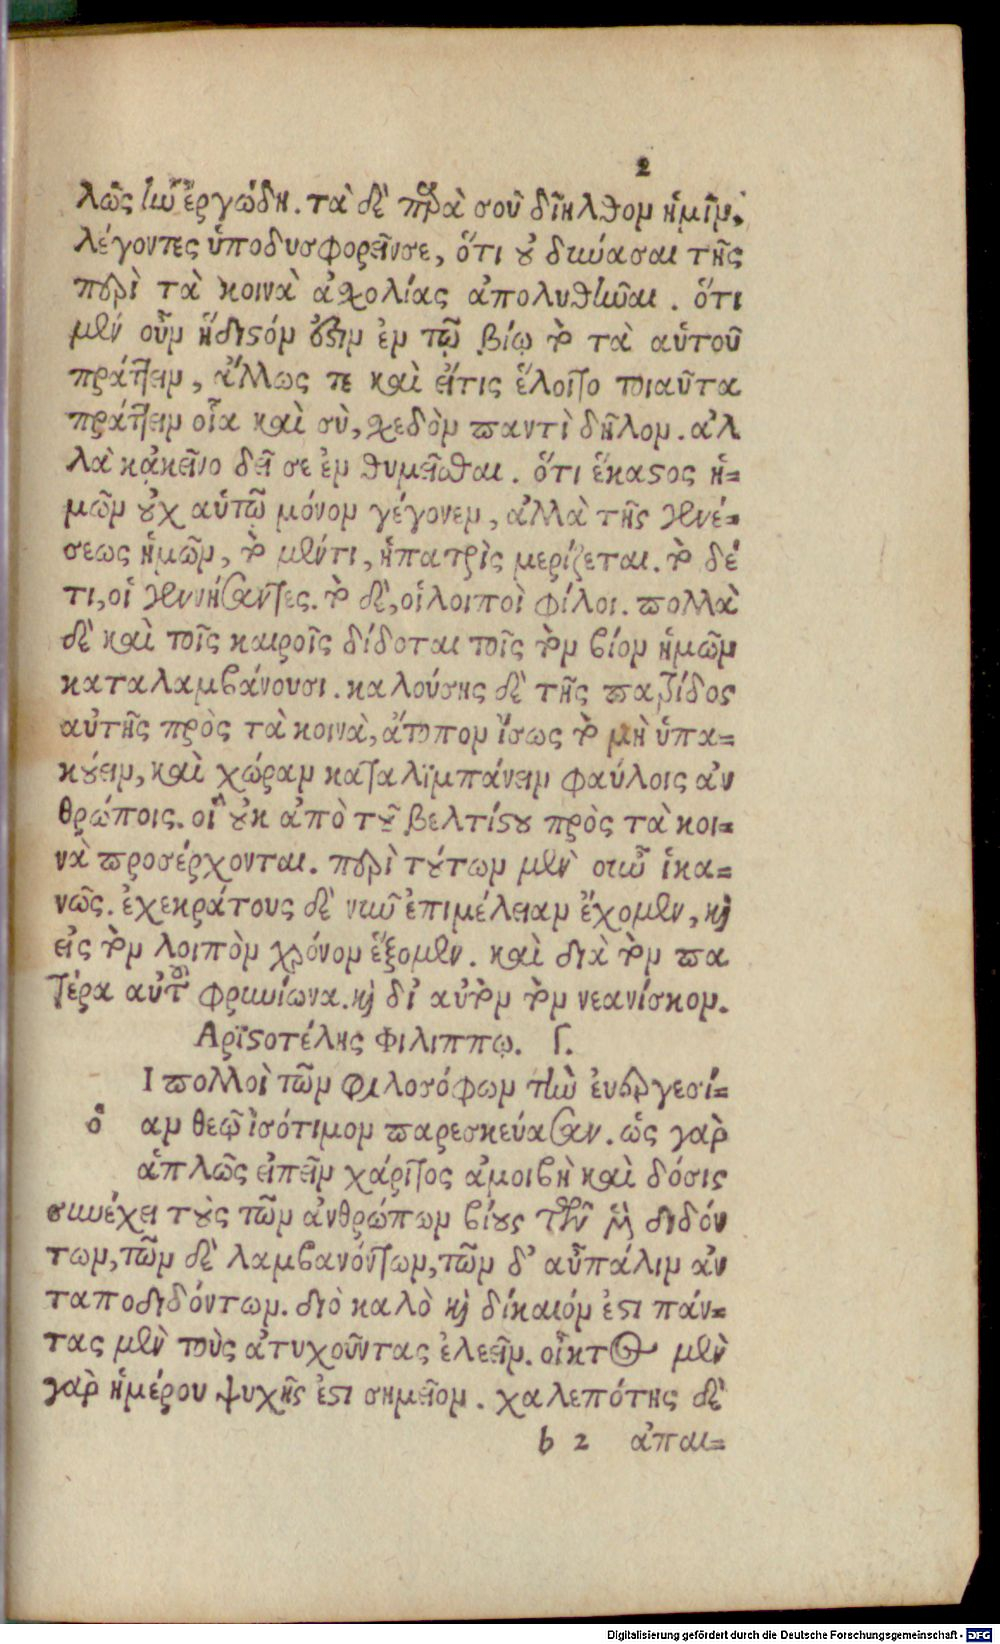 2
λῶς ἦν ἐργώδη. τὰ δὲ παρὰ σοῦ διῆλθον ἡμῖν,
λέγοντες ὑποδυσφορεῖν σε, ὅτι οὐ δύνασαι τῆς
περὶ τὰ κοινὰ ἀσχολίας ἀπολυθῆναι. ὅτι
μὲν οὖν ἥδιστόν ἐστιν ἐν τῷ βίῳ τὸ τὰ αὑτοῦ
πράττειν, ἄλλως τε καὶ εἴτις ἕλοιτο τοιαῦτα
πράττειν οἷα καὶ σὺ, σχεδὸν παντὶ δῆλον. ἀλ
λὰ κᾀκεῖνο δεῖ σε ἐν θυμεῖσθαι. ὅτι ἕκαστος ἡ-
μῶν οὐχ αὑτῷ μόνον γέγονεν, ἀλλὰ τῆς γενέ-
σεως ἡμῶν, τὸ μέντι, ἡ πατρὶς μερίζεται. τὸ δέ
τι, οἱ γεννήσαντες. τὸ δὲ, οἱ λοιποὶ φίλοι. πολλὰ
δὲ καὶ τοῖς καιροῖς δίδοται τοῖς τὸν βίον ἡμῶν
καταλαμβάνουσι. καλούσης δὲ τῆς πατρίδος
αὐτῆς πρὸς τὰ κοινὰ, ἄτοπον ἴσως τὸ μὴ ὑπα-
κούειν, καὶ χώραν καταλϊμπάνειν φαύλοις ἀν
θρώποις. οἳ οὐκ ἀπὸ τοῦ βελτίστου πρὸς τὰ κοι-
νὰ προσέρχονται. περὶ τούτων μὲν οὖν ἱκα-
νῶς. ἐχεκράτους δὲ νῦν ἐπιμέλειαν ἔχομεν, καὶ
εἰς τὸν λοιπὸν χρόνον ἕξομεν. καὶ διὰ τὸν πα
τέρα αὐτοῦ φρυνίωνα. καὶ δι' αὐτὸν τὸν νεανίσκον.
Αρϊστοτέλης Φιλιππῳ. Γ.
Ι πολλοὶ τῶν φιλοσόφων τὴν ἐυεργεσί-
ὁ αν θεῷ ἰσότιμον παρεσκεύασαν. ὡς γὰρ
ἁπλῶς εἰπεῖν χάριτος ἀμοιβὴ καὶ δόσις
συνέχει τοὺς τῶν ἀνθρώπων βίους τῶν μὲν διδόν
των, τῶν δὲ λαμβανόντων, τῶν δ' αὖ πάλιν ἀν
ταποδιδόντων. διὸ καλὸ καὶ δίκαιόν ἐστι πάν-
τας μὲν τοὺς ἀτυχοῦντας ἐλεεῖν. οἶκτος μὲν
γὰρ ἡμέρου ψυχῆς ἐστι σημεῖον. χαλεπότης δὲ
b 2 ἀπαι-
Digitalisierung gefördert durch die Deutsche Forschungsgemeinschaft - DFG